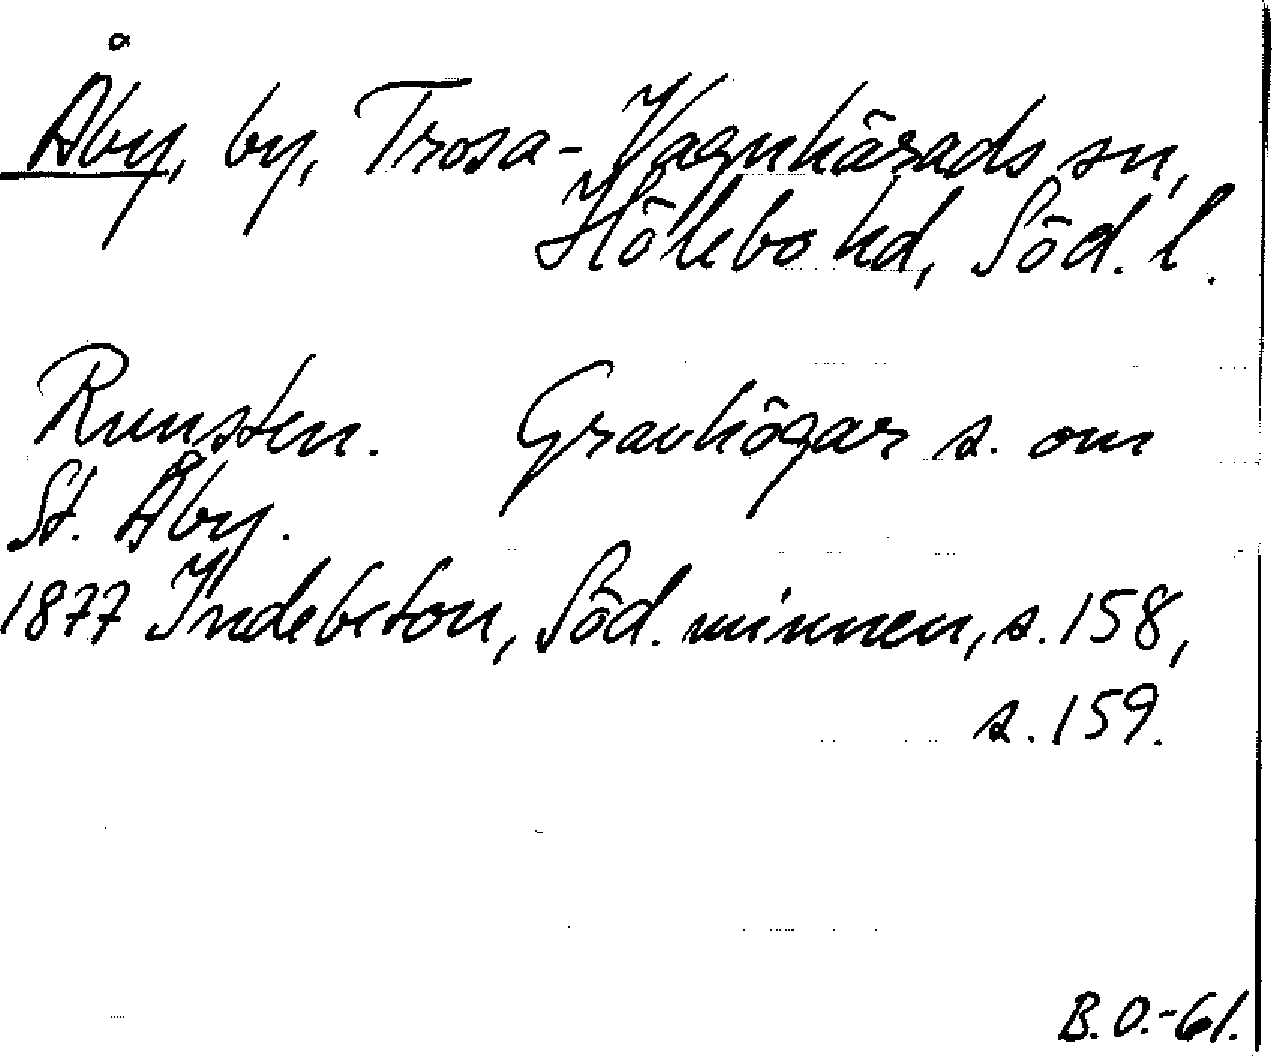 Åby, by, Trosa-Vagnhärads sn,
Hölebo hd, Söd. l.
Runsten. Gravhögar s. om
St. Åby.
1877 Indebetou, Söd. minnen, s. 158,
s. 159.
B.O.-61.